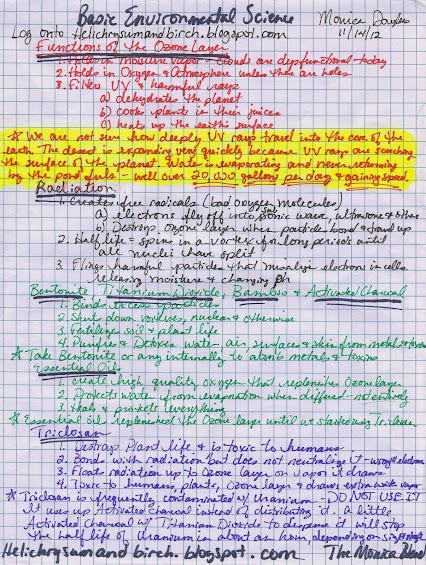 Basic Environmental Science
Monica
11/14/12
Log onto Helichrysumandbirch.blogspot.com
Functions of the Ozone Layer
1. Holds in moisture vapor - clouds are dysfunctional today
2. Holds in Oxygen & Atmosphere unless there are holes
3. Filter UV & harmful rays
a) dehydrates the planet
b) cooks plants in their juices
c) heats up the earth's surface
* We are not sure how deeply UV rays travel into the core of the
earth. The desert is expanding very quickly because UV rays are scorching
the surface of the planet. Water is evaporating and never returning
by the pond fulls - well over 20,000 gallons per day & gaining speed.
Radiation
1. Creates free radicals (bad oxygen molecules)
a) electrons fly off into sonic wave, ultrasone & others
b) Destroys Ozone layer when particles bond & travel up
2. Half life = spins in a vortex for long periods until
all nuclei have split
3. Flings harmful particles that misalign electrons in cells
releasing moisture & changing ph
Bentonite Titanium Dioxide, Bamboo & Activated Charcoal
1. Binds nuclear particles
2. Shut down vortexes, nuclear & otherwise
3. Fertilizes soil & plant life
4. Purifies & Detoxes water, air, surfaces & skin from metals & toxins
* Take Bentonite or any internally to absorb metals & toxins
Essential Oils
1. Create high quality oxygen that replenishes Ozone layer
2. Protects water from evaporation when diffused - not entirely
3. Heals & protects everything
* Essential Oils replenished the Ozone layer until we started using Triclosan
Triclosan
1. Destroys Plant life & is toxic to humans
2. Bonds with radiation but does not neutralize it - wrong # electrons
3. Floats radiation up to Ozone layer on vapor it draws
4. Toxic to humans, plants, Ozone layer & draws extra water vapor
* Triclosan is frequently contaminated w/ Uranium - DO NOT USE IT
It uses up Activated Charcoal instead of distributing it. A little
Activated Charcoal w/ Titanium Dioxide to dispense it will stop
the half life of Uranium in about an hour, depending on size &
Helichrysumandbirch.blogspot.com The Monica Blend